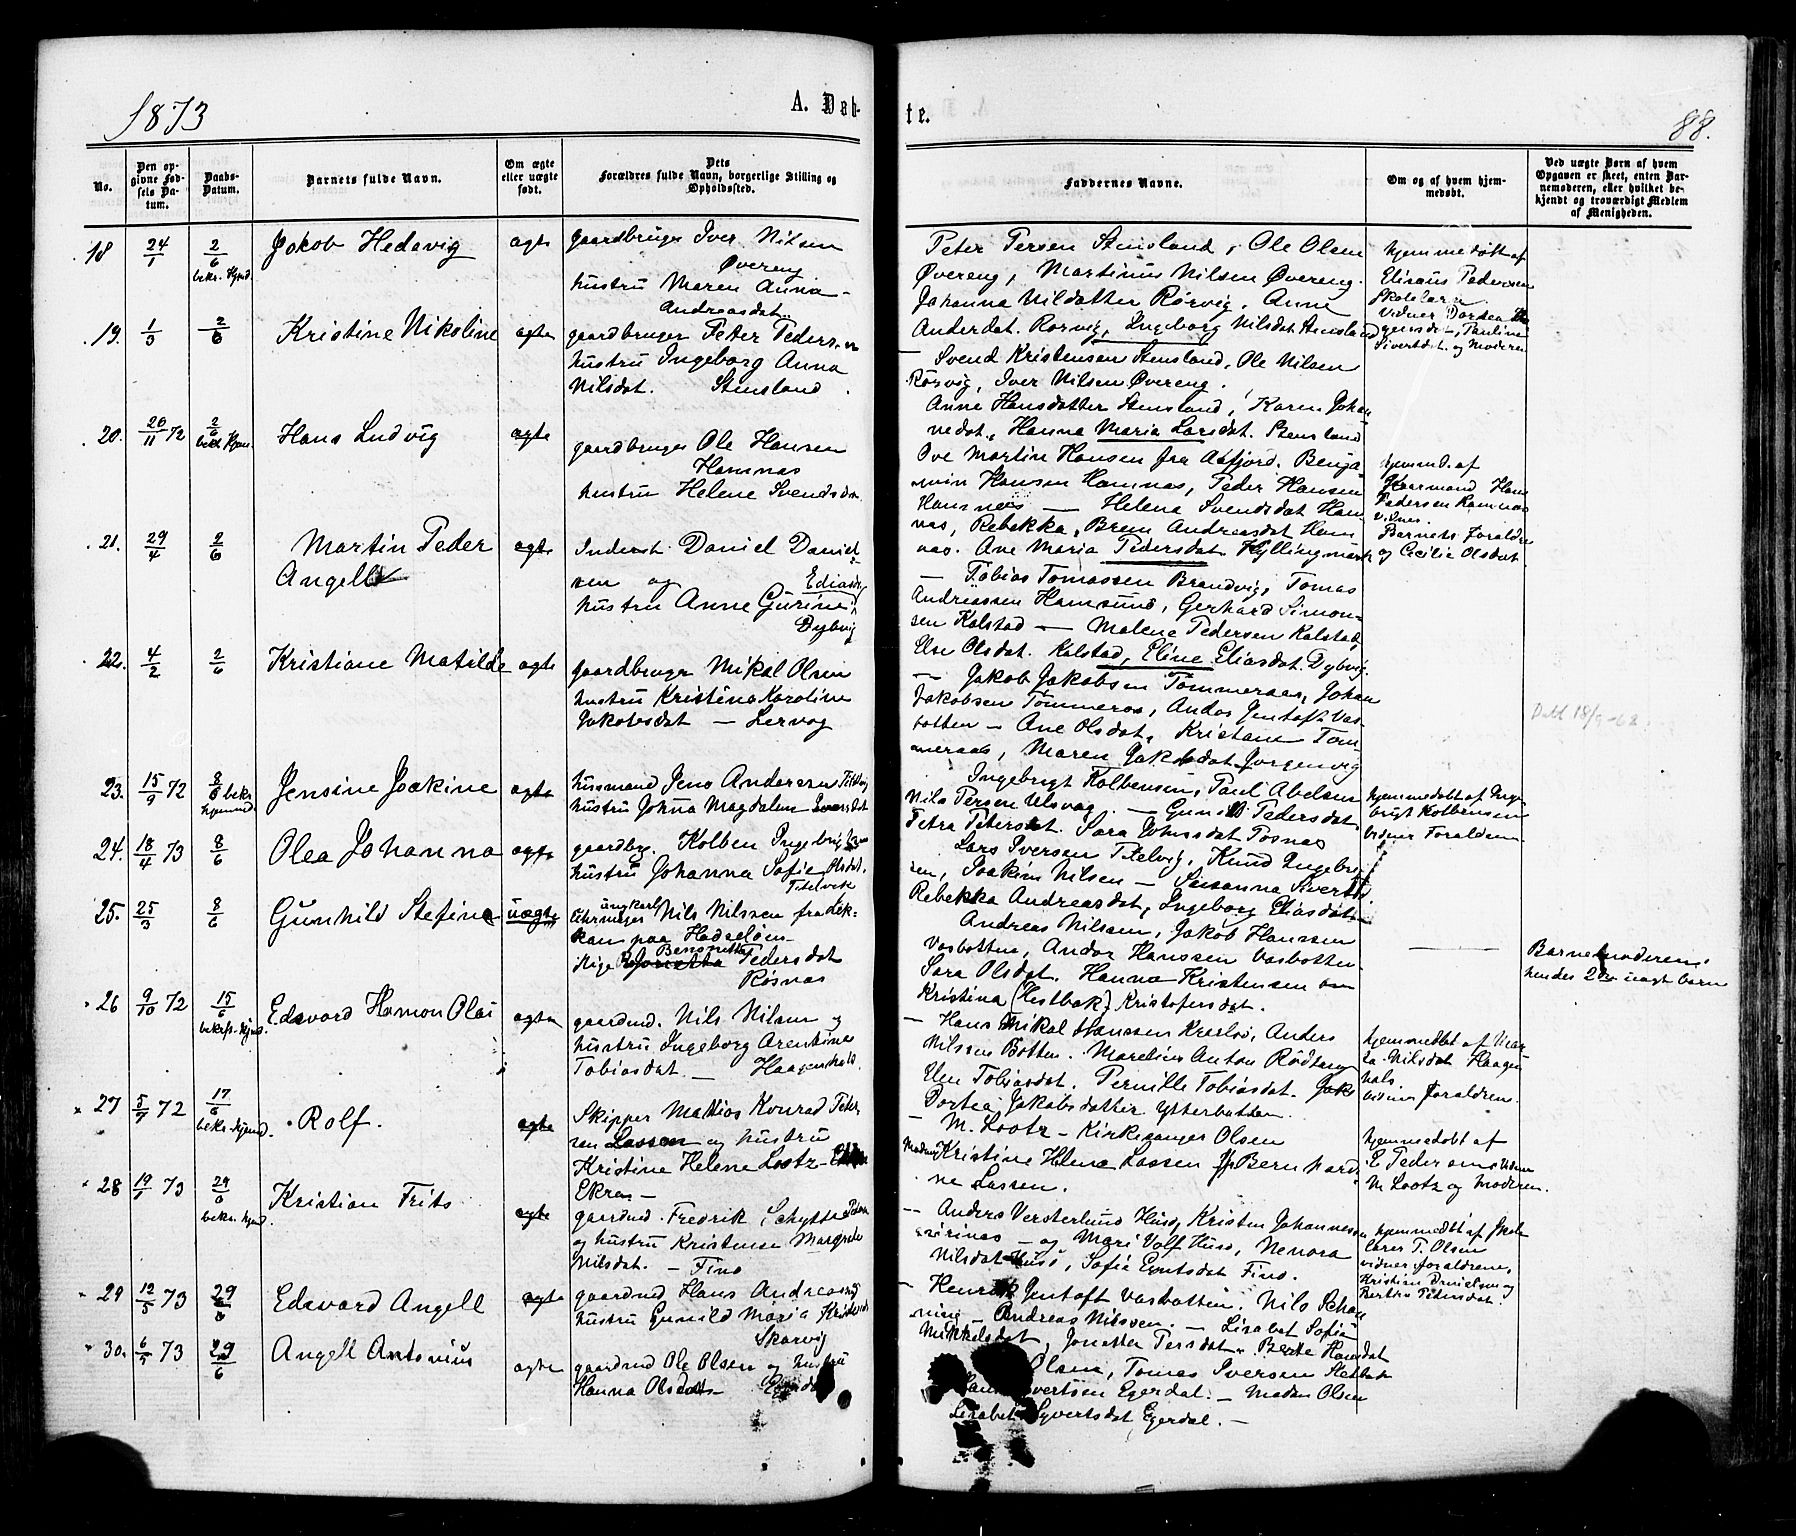 1873
A. Døb-
te.
88.
No.
Den op-
givne Fød-
sels Da-
tum.
Daabs-
Datum.
Barnets fulde Navn.
Om ægte
eller uægte
født.
Dets
Forældres fulde Navn, borgerlige Stilling og
Opholdssted.
Faddernes Navne.
Om og af hvem hjem-
medøbt.
Ved uægte Børn af hvem
Opgaven er skeet, enten Bar-
nemoderen, eller hvilket be-
kjendt og troværdigt Medlem
af Menigheden.
18 24/1 2/6 Jakob Hedevig ægte gaardbruger Iver Nilsen
beks. Hjmd
Øvereng
hustru Maren Anna
Andreasdat.
Peter Persen Stensland, Ole Olsen
Øvereng, Martinus Nilsen Øvereng.
Johanna Nildatter Rørvig, Anne
Andersdat. Rørvig, Ingeborg Nilsdat. Stensland
hjemmedøbt af
Elisæus Pedersen
Skolelærer
Vidner Dortea
Sivertsdat. og Moderen
19. 1/3 2/6 Kristine Nikoline ægte gaardbruger Peter Pedersen
hustru Ingeborg Anna
Nilsdat. Stensland
— Svend Kristensen Stensland, Ole Nilsen
Rørvig, Iver Nilsen Øvereng.
Anne Hansdatter Stensland, Karen Johan
nedat, Hanna Maria Larsdat. Stensland
20. 20/11 72 2/6 Hans Ludvig ægte
gaardbruger Ole Hansen
Hamnæs
hustru Helene Svendsdat.
Ove Martin Hansen fra Aafjord. Benja
min Hansen Hamnæs, Peder Hansen
Hamnæs — Helena Svendsdat Ham
næs, Rebekka Brem Andreasdat Ham
næs. Ane Maria Pedersdat. Kyllingmark
hjemmed. af
Pedersen Hamnæs
vidner
Barnets Forældre
og Cecilie Olsdat.
21. 29/4 2/6 Martin Peder
Angell
ægte Inderst. Daniel Daniel
sen og
hustru Anne Gurine
Dybvig
— Tobias Tomassen Brandvig, Tomas
Andreassen Hamsund, Gerhard Simon-
sen Kalstad — Malene Pedersen Kalstad
Else Olsdat. Kalstad, Eline Eliasdat. Dybvig.
22. 4/2 2/6 Kristiane Matilde ægte gaardbruger Mikal Olsen
hustru Kristina Karoline
Jakobsdat — Lervog
— Jakob Jakobsen Tømmeraas, Johan
Jakobsen Tømmeraas, Andor Jentoft Vas-
botten — Ane Olsdat, Kristane Tøm
meraas, Maren Jakobsdat Jørgenvig
23. 15/9 72 8/6 beks.
hjemmd.
Jensine Joakine ægte husmand Jens Andersen Titelvig
hustru Johna Magdalena Iversdat
Ingebrigt Kolbensen, Paul Abelsen
Nils Persen Ulsvaag. — Gunild Pedersdat
Petra Petersdat. Sara Johnsdat Posnæs
hjemmedøbt af Inge
brigt Kolbensen
vidner Forældrene
24. 18/4 73 8/6 Olea Johanna ægte gaardbr. Kolben Ingebrigtsen
hustru Johanna Sofie Olsdat.
Titelvik
Lars Iversen Titelvig, Knud Ingebrigt
sen, Joakim Nilsen — Susanna Sivertsd.
Rebekka Andreasdat, Ingeborg Eliasdat
25. 25/3 8/6 Gunhild Stefina uægte
ungkarl
Nils Nilssen fra
paa Hadseløen
Pige Pedersdat
Røsnæs
Andreas Nilsen, Jakob Hanssen
Vasbotten, Andor Hanssen Vasbotten
Sara Olsdat. Hanna Kristensen
Kristina (Hestbak) Kristofersdat.
Barnemoderen.
hendes 2det uægt barn
26 9/10 72 15/6 Edevard Hamon Olai
bekrft. hjmd.
ægte gaardmd. Nils Nilsen og
hustru Ingeborg Arentine
Tobiasdat — Haagenhals.
— Hans Mikal Hanssen Kreelsø, Anders
Nilssen Botten. Marelius Anton Rødtang
Elen Tobiasdat. Pernille Tobiasdat.
Dortea Jakobsdatter Ytterbotten.
hjemmedøbt af
Nilsdat Haagen
hals.
vidner Forældren.
27 5/7 72 17/6
beks. hjemd.
Rolf.
ægte Skipper Mattias Konrad Peter
sen Lassen og hustru
Kristine Helene Lootz
Ekra —
— M. Lootz — Kirkesanger Olsen
Madam Kristine Helena Lassen Bernhard-
ne Lassen.
hjemmedøbt af
E Pedersen vidner
M Lootz og moderen.
28 19/1 73 29/6
beks. hjmd.
Kristian Frits
ægte gaardmd. Fredrik Schytte
og hustru Kristense Margrete
Nilsdat. — Finø
— Anders Vesterlund Husø, Kristen Johannessen
— og Mari Volf Husø, Nenora
Nilsdat Husø, Sofie Evertsdat Finø.
hjemmedøbt af Skole
lærer T. Olsen
vidner forældrene,
Kristian Danielsen og
Bertea Petersdat.
29 12/5 73 29/6 Edevard Angell ægte gaardmd Hans Andreassen
hustru Gunild Maria
Skarvig
— Henrik Jentoft Vasbotten. Nils Johan
— Andreas Nilssen. — Lisabet Sofie
Mikkelsdat, Jonetta Persdat. Berte Hansdat
30. 6/5 73 29/6 Angell Antonius ægte gaardmd Ole Olsen og hustru
Hanna Olsdat
Olsen, Tomas Iversen
Sivertsen Egerdal. — Madam Olsen
Lisabet Syvertsdat Egerdal. —